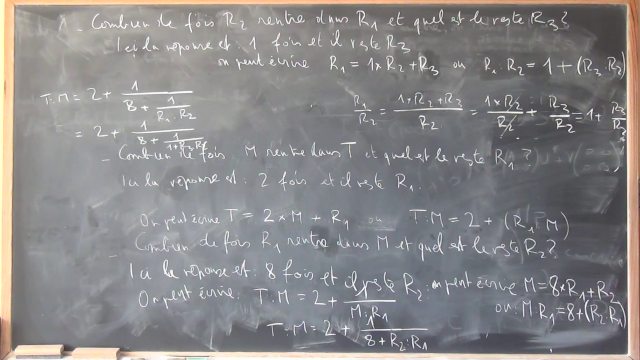 1. Combien de fois R₂ rentre dans R₁ et quel est le reste R₃?
Ici la réponse est : 1 fois et il reste R₃
on peut écrire R₁ = 1×R₂ + R₃ ou R₁:R₂ = 1 + (R₃:R₂)
T:M = 2 + 1/(8 + 1/(R₁:R₂))
R₁/R₂ = (1×R₂+R₃)/R₂ = (1×R₂)/R₂ + R₃/R₂ = 1 + R₃/R₂
= 2 + 1/(8 + 1/(1+R₃:R₂))
- Combien de fois M rentre dans T et quel est le reste R₁ ?
Ici la réponse est : 2 fois et il reste R₁.
On peut écrire T = 2×M + R₁ ou T:M = 2 + (R₁:M)
- Combien de fois R₁ rentre dans M et quel est le reste R₂?
Ici la réponse est : 8 fois et il reste R₂ : on peut écrire M = 8×R₁ + R₂
ou : M:R₁ = 8 + (R₂:R₁)
On peut écrire : T:M = 2 + 1/(M:R₁)
T:M = 2 + 1/(8 + R₂:R₁)